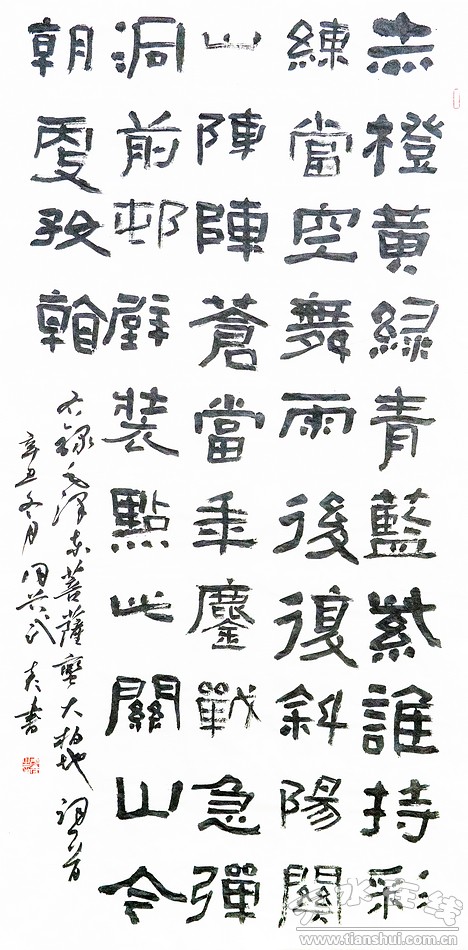 赤橙黃綠青藍紫誰持彩
練當空舞雨後復斜陽關
山陣陣蒼當年鏖戰急彈
洞前邨壁裝點此關山今
朝更好看
右錄毛泽东菩薩蠻大柏地詞一首
辛丑冬月書
天水在线
www.tianshui.com.cn